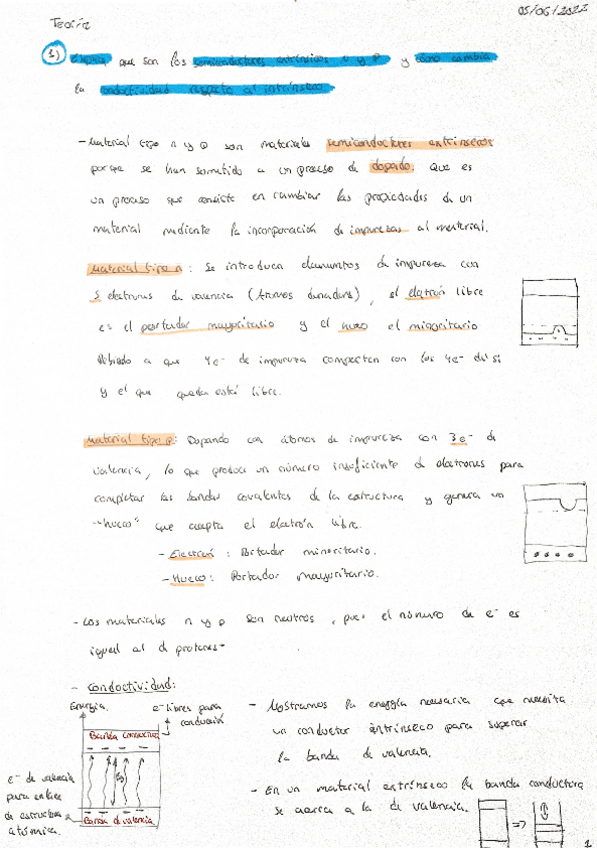 05/06/2022
Teoría
1) Explica que son los semiconductores extrínsecos n y p y cómo cambia
la conductividad respecto al intrínseco.
- Material tipo n y p son materiales semiconductores extrínsecos
porque se han sometido a un proceso de dopado. Que es
un proceso que consiste en cambiar las propiedades de un
material mediante la incorporación de impurezas al material.
Material tipo n: Se introducen elementos de impureza con
5 electrones de valencia (átomos donadores), el eletrón libre
es el portador mayoritario y el hueco el minoritario
debido a que 4e- de impureza comparten con los 4e- del si
y el que queda está libre.
Material tipo p: Dopando con átomos de impureza con 3e- de
valencia, lo que produce un número insuficiente de electrones para
completar las bandas covalentes de la estructura y genera un
"hueco" que acepta el electrón libre.
- Electrón: Portador minoritario.
- Hueco: Portador mayoritario.
- Los materiales n y p son neutros, pues el número de e- es
igual al d protones-
- Conductividad:
Energía.
e- libres para
conducción
Banda conductora
Eg
Banda d valencia
e- de valencia
para enlace
de estructura
atómica.
- Mostramos la energía necesaria que necesita
un conductor intrínseco para superar
la banda de valencia.
- En un material extrínseco la banda conductora
se acerca a la de valencia.
=>
1